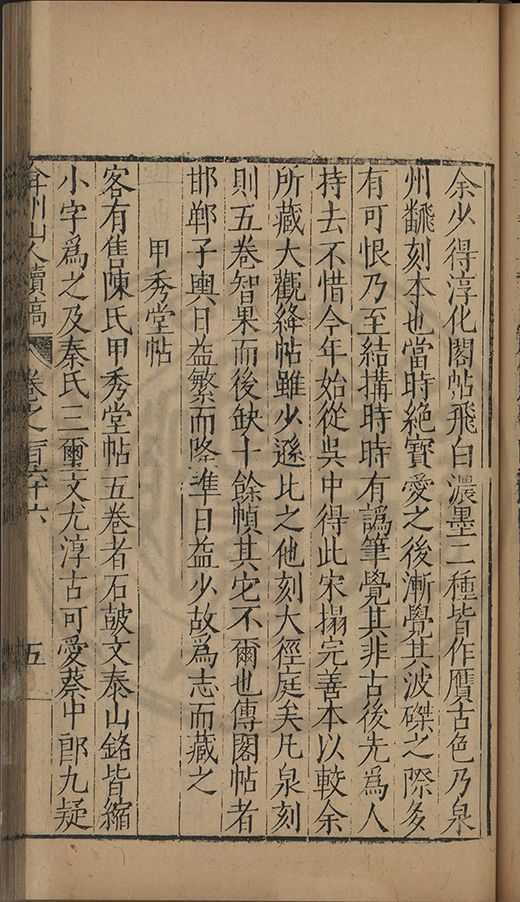 余少得淳化閣帖飛白濃墨二種皆作贋古色乃泉
州飜刻本也當時絶寳愛之後漸覺其波磔之際多
有可恨乃至結搆時時有譌筆覺其非古後先爲人
持去不惜今年始從吳中得此宋搨完善本以較余
所藏大觀絳帖雖少遜比之他刻大徑庭矣凡泉刻
則五卷智果而後缺十餘幀其它不爾也傳閣帖者
邯鄲子輿日益繁而隆準日益少故爲志而藏之
甲秀堂帖
客有售陳氏甲秀堂帖五卷者石皷文泰山銘皆縮
小字爲之及秦氏三璽文尤淳古可愛蔡中郎九疑
弇州山人續稿 卷之一百六十六 五